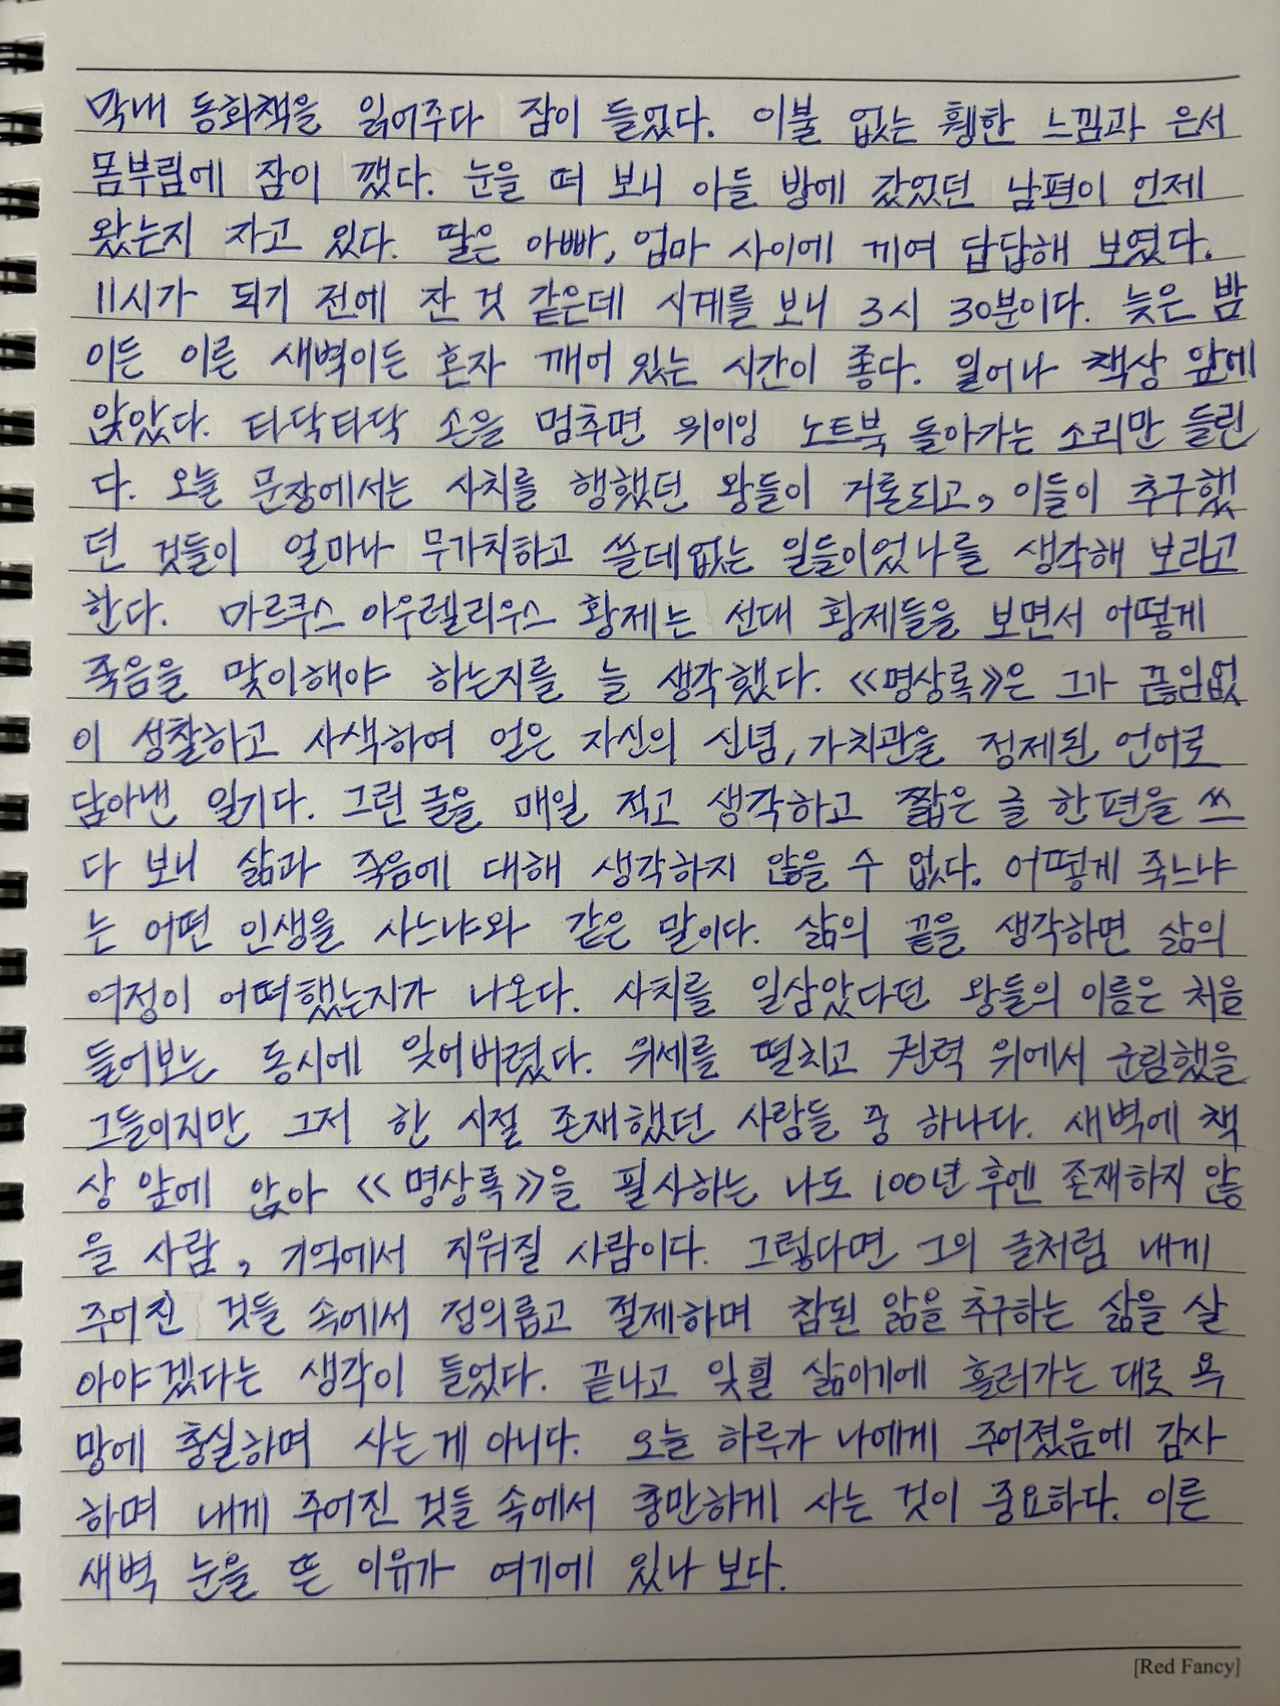 막내 동화책을 읽어주다 잠이 들었다. 이불 없는 휑한 느낌과 은서
몸부림에 잠이 깼다. 눈을 떠 보니 아들 방에 갔었던 남편이 언제
왔는지 자고 있다. 딸은 아빠, 엄마 사이에 끼여 답답해 보였다.
11시가 되기 전에 잔 것 같은데 시계를 보니 3시 30분이다. 늦은 밤
이든 이른 새벽이든 혼자 깨어 있는 시간이 좋다. 일어나 책상 앞에
앉았다. 타닥타닥 손을 멈추면 위이잉 노트북 돌아가는 소리만 들린
다. 오늘 문장에서는 사치를 행했던 왕들이 거론되고, 이들이 추구했
던 것들이 얼마나 무가치하고 쓸데없는 일들이었나를 생각해 보라고
한다. 마르쿠스 아우렐리우스 황제는 선대 황제들을 보면서 어떻게
죽음을 맞이해야 하는지를 늘 생각했다. 《명상록》은 그가 끊임없
이 성찰하고 사색하여 얻은 자신의 신념, 가치관을 정제된 언어로
담아낸 일기다. 그런 글을 매일 적고 생각하고 짧은 글 한 편을 쓰
다 보니 삶과 죽음에 대해 생각하지 않을 수 없다. 어떻게 죽느냐
는 어떤 인생을 사느냐와 같은 말이다. 삶의 끝을 생각하면 삶의
여정이 어떠했는지가 나온다. 사치를 일삼았다던 왕들의 이름은 처음
들어보는 동시에 잊어버렸다. 위세를 떨치고 권력 위에서 군림했을
그들이지만 그저 한 시절 존재했던 사람들 중 하나다. 새벽에 책
상 앞에 앉아 《명상록》을 필사하는 나도 100년 후엔 존재하지 않
을 사람, 기억에서 지워질 사람이다. 그렇다면 그의 글처럼 내게
주어진 것들 속에서 정의롭고 절제하며 참된 앎을 추구하는 삶을 살
아야겠다는 생각이 들었다. 끝나고 잊힐 삶이기에 흘러가는 대로 욕
망에 충실하며 사는게 아니다. 오늘 하루가 나에게 주어졌음에 감사
하며 내게 주어진 것들 속에서 충만하게 사는 것이 중요하다. 이른
새벽 눈을 뜬 이유가 여기에 있나 보다.
[Red Fancy]